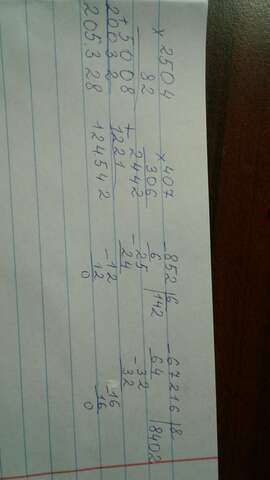 × 2504
82
+ 5008
20032
205328
× 407
306
+ 2442
1221
124542
- 852 | 6
6 | 142
- 25
24
- 12
12
0
- 67216 | 8
64 | 8402
- 32
32
- 16
16
0